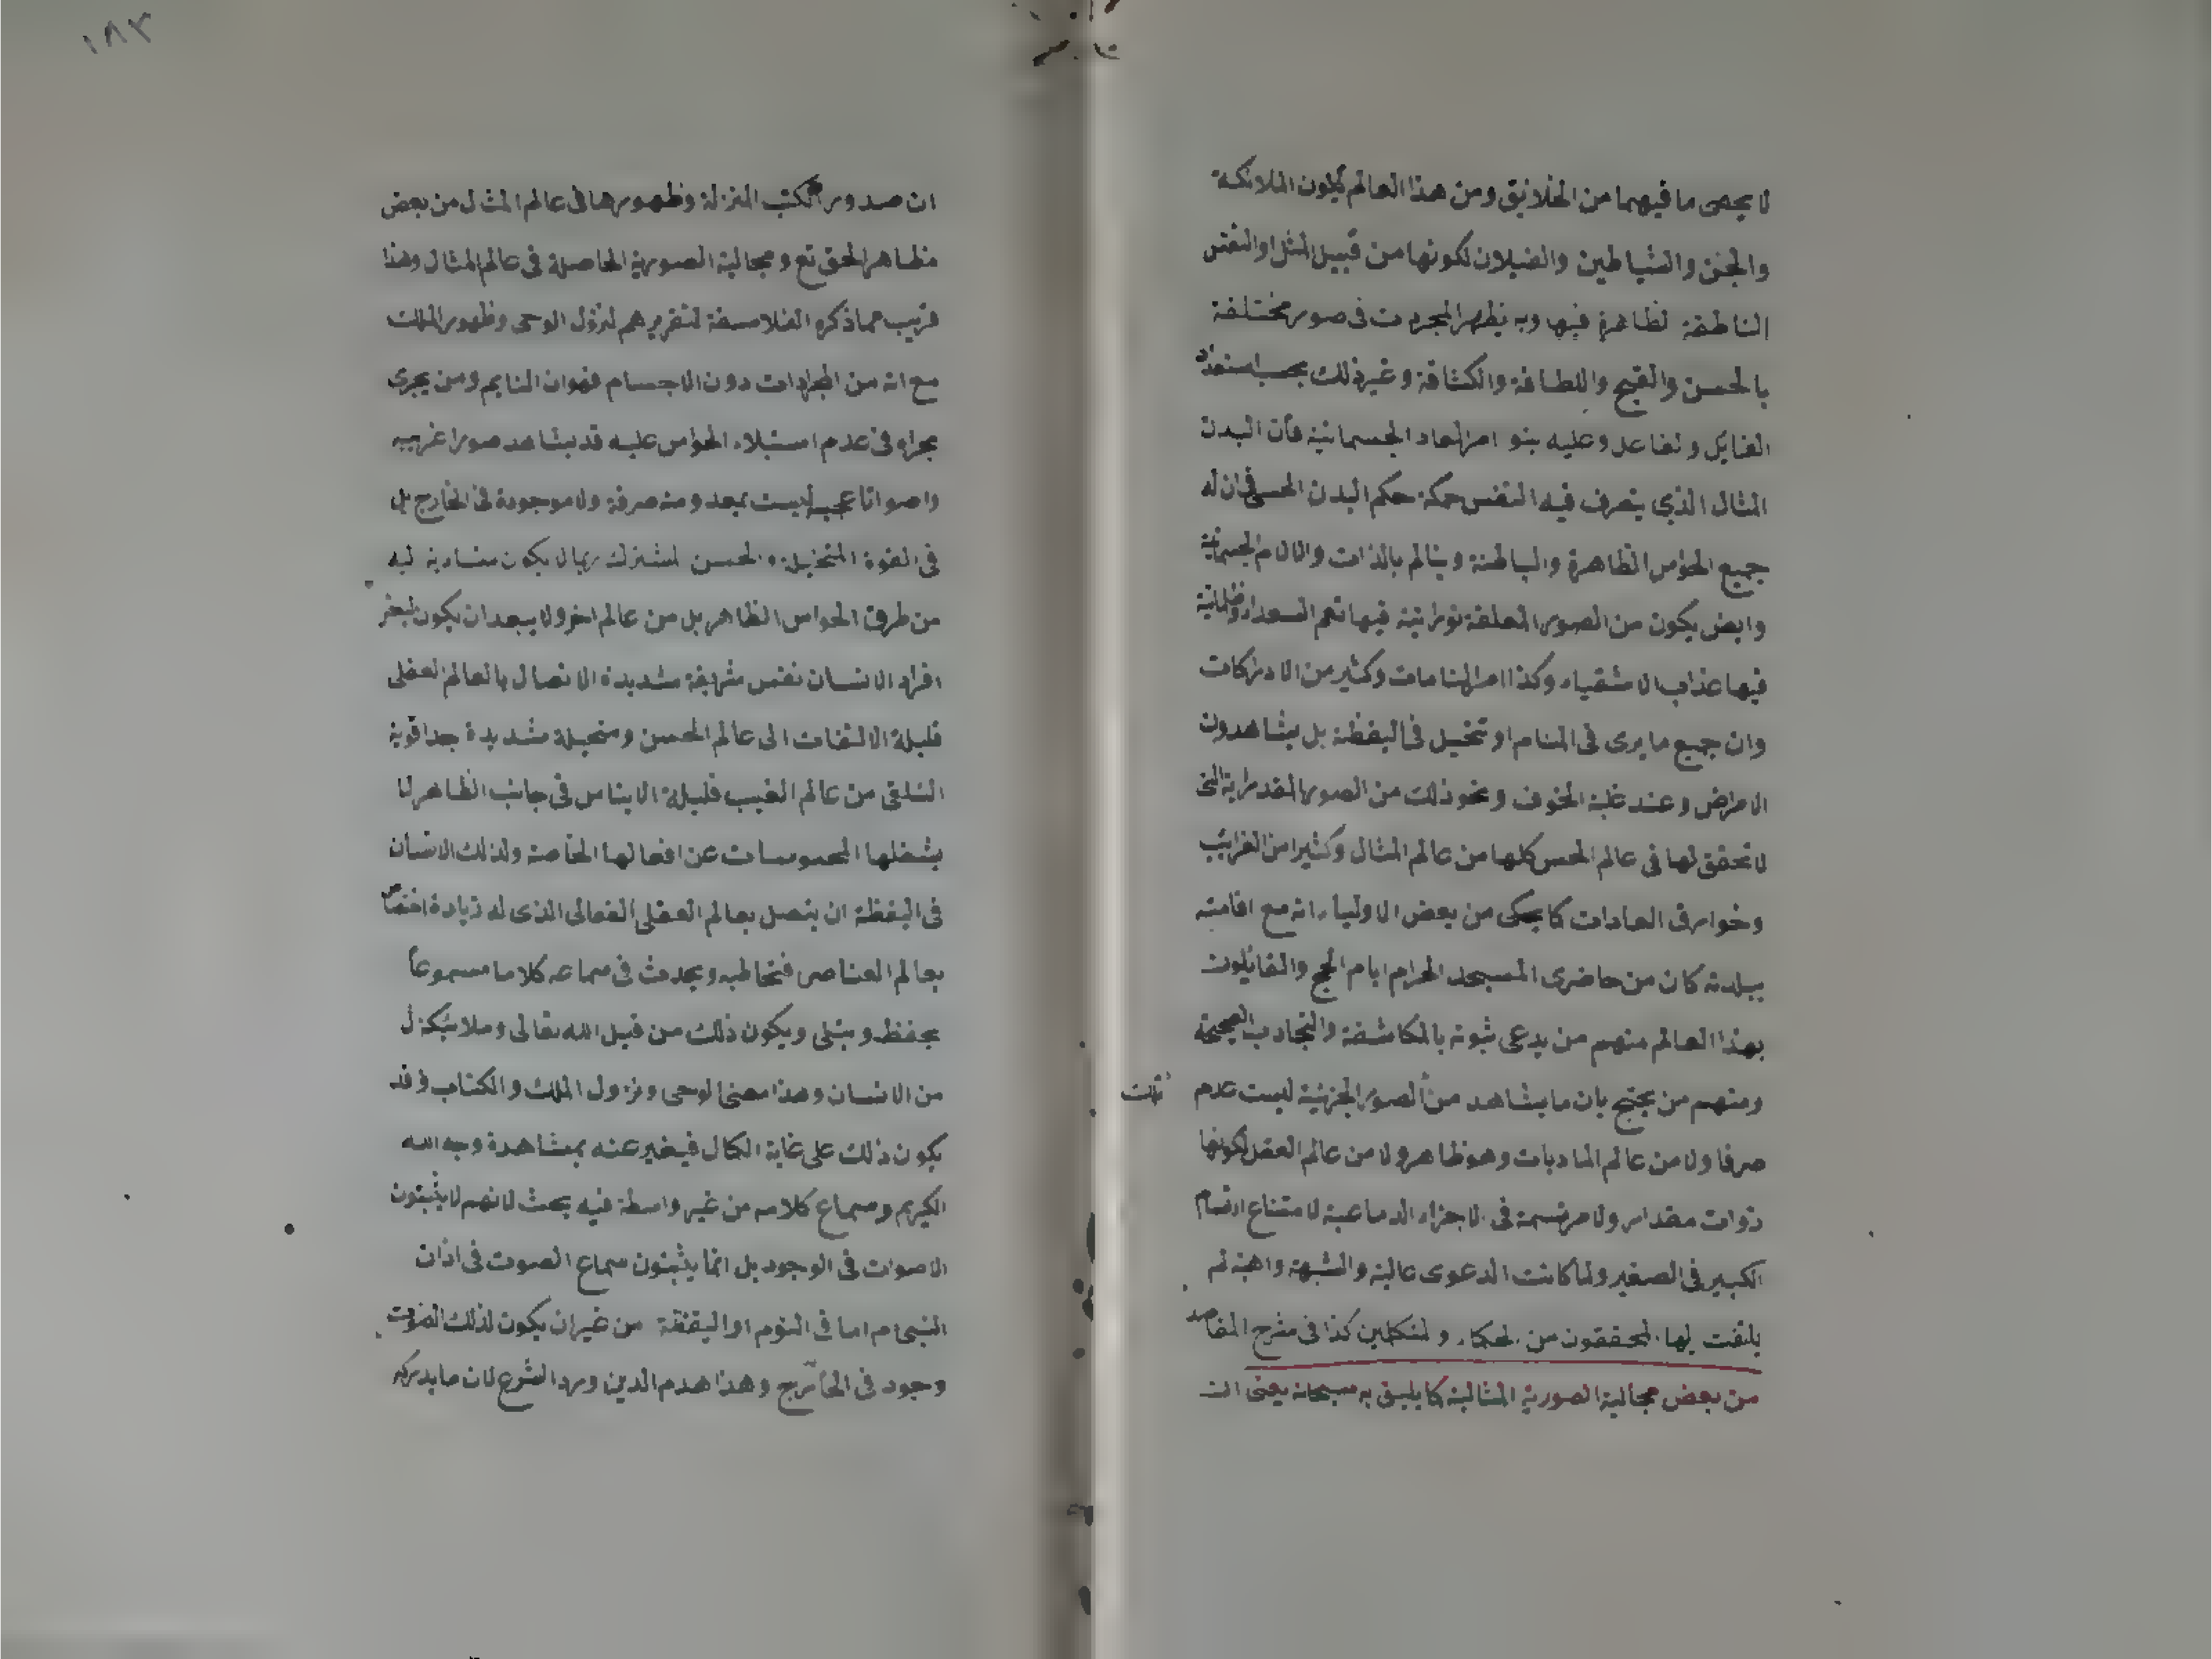 لا يحصى ما فيهما من الخلايق ومن هذا العالم يكون الملائكة
والجن والشياطين والغيلان لكونها من قبيل المثل او النفس
الناطقة لظاهرة فيها وبه يظهر المجردات فى صور مختلفة
بالحسن والقبح واللطافة والكثافة وغير ذلك بحسب استعداد
القابل والفاعل وعليه بنو امر المعاد الجسمانية فان البدن
المثال الذي يتصرف فيه النفس حكمه حكم البدن الحسى فى ان له
جميع الحواس الظاهرة والباطنة ويتالم بالذات والالام الجسمانية
وايض يكون من الصور المعلقة نورانية فيها نعم السعداء وظلمانية
فيها عذاب الاشقياء وكذا امر المنامات وكثير من الادراكات
وان جميع ما يرى فى المنام او تخيل فى اليقظة بل يشاهدون
الامراض وعند غلبة الخوف ونحو ذلك من الصور المقدراية التى
لا تحقق لها فى عالم الحس كلها من عالم المثال وكثيرا من الغرايب
وخوارق العادات كما يحكى من بعض الاولياء انه مع اقامته
ببلدته كان من حاضرى المسجد الحرام ايام الحج والقايلون
بهذا العالم منهم من يدعى ثبوته بالمكاشفة والتجارب الصحيحة
ومنهم من يحتج بان ما يشاهد من الصور الجزئية ليست عدم
صرفا ولا من عالم الماديات وهو ظاهر ولا من عالم العقل لكونها
ذوات مقدار ولا مرتسمة فى الاجزاء الدماغية لامتناع ارتسام
الكبير فى الصغير ولما كانت الدعوى عالية والشبهة واهية لم
يلتفت لها المحققون من الحكماء والمتكلمين كذا فى شرح المقاصد
من بعض مجالية الصورية المثالية كما يليق به سبحانه يعنى ان
١٨٢
ان صدور الكتب المنزلة وظهورها فى عالم المثال من بعض
مظاهر الحق تع ومجالية الصورية الحاصلة فى عالم المثال وهذا
قريب مما ذكره الفلاسفة لتقريرهم لنزول الوحى وظهور الملك
مع انه من المجردات دون الاجسام فهو ان النايم ومن يجرى
مجراه فى عدم استيلاء الحواس عليه قد يشاهد صورا غريبه
واصواتا عجيبه ليست بمعدومة صرفة ولا موجودة فى الخارج بل
فى القوة المتخيلة والحسن المشترك ربما لا يكون متادية ليه
من طرق الحواس الظاهر بل من عالم اخر ولا يبعد ان يكون لبعض
افراد الانسان نفس شريفة شديدة الاتصال بالعالم العقلى
قليلة الالتفات الى عالم الحسن ومتخيلة شديدة جدا قوية
التلقى من عالم الغيب قليلة الايناس فى جانب الظاهر لا
يشغلها المحسوسات عن افعالها الخاصة ولذلك الانسان
فى اليقظة ان يتصل بعالم العقلى الفعالى الذى له زيادة اختصاص
بعالم العناصر فتخاطبه ويحدث فى سماعه كلاما مسموعا
يحفظ ويتلى ويكون ذلك من قبل الله تعالى وملائكته لا
من الانسان وهذا معنى الوحى ونزول الملك والكتاب وقد
يكون ذلك على غاية الكمال فيعبر عنه بمشاهدة وجه الله
الكريم وسماع كلامه من غير واسطة فيه بحث لانهم لا يثبتون
الاصوات فى الوجود بل انما يثبتون سماع الصوت فى اذان
النبى م اما فى النوم او اليقظة من غير ان يكون لذلك الصوت
وجود فى الخارج وهذا هدم الدين ورد الشرع لان ما يدركه